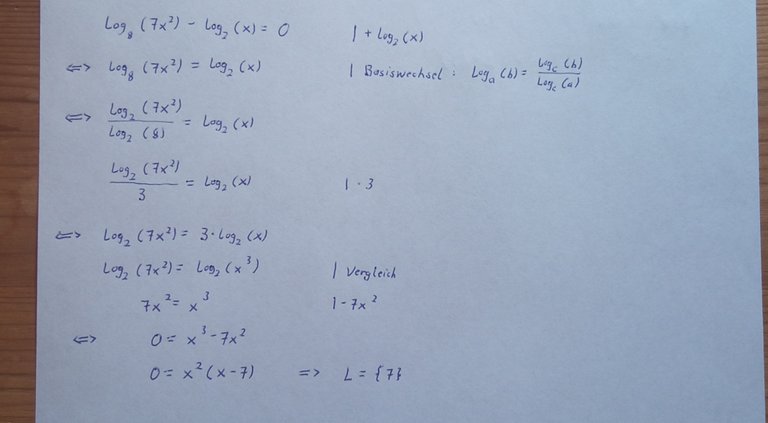 Log₈ (7x²) - Log₂ (x) = 0 | + Log₂ (x)
<=> Log₈ (7x²) = Log₂ (x) | Basiswechsel : Logₐ (b) = Log_c (b) / Log_c (a)
<=> Log₂ (7x²) / Log₂ (8) = Log₂ (x)
Log₂ (7x²) / 3 = Log₂ (x) | · 3
<=> Log₂ (7x²) = 3 · Log₂ (x)
Log₂ (7x²) = Log₂ (x³) | Vergleich
7x² = x³ | - 7x²
<=> 0 = x³ - 7x²
0 = x² (x - 7) => L = {7}